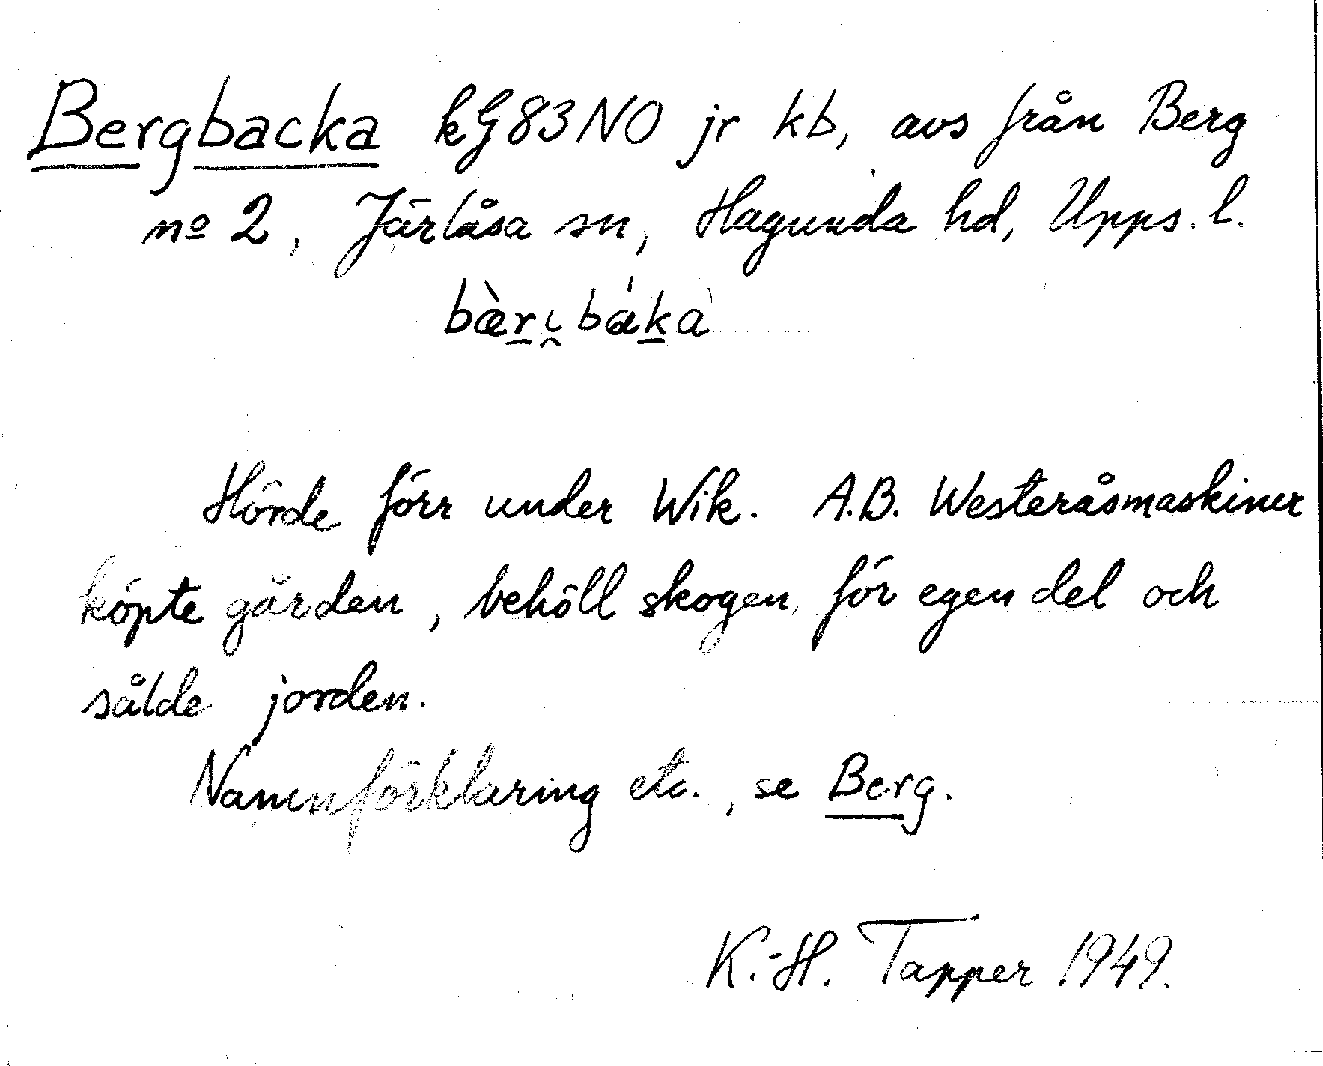 Bergbacka kG83NO jr kb, avs från Berg
nº 2, Järlåsa sn, Hagunda hd, Upps. l.
bæ̀rı̯báka
Hörde förr under Wik. A.B. Westeråsmaskiner
köpte gården, behöll skogen för egen del och
sålde jorden.
Namnförklaring etc., se Berg.
K.-H. Tapper 1949.